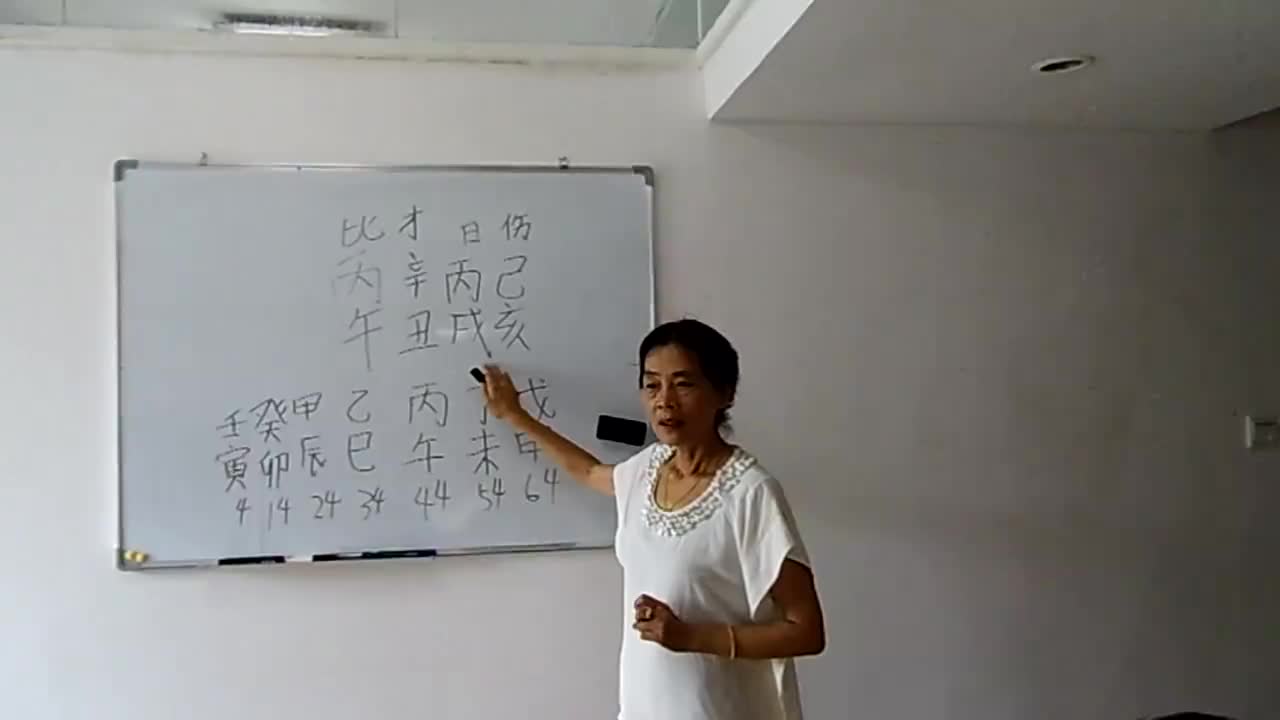 比 才 日 伤
丙 辛 丙 己
午 丑 戌 亥
壬 癸 甲 乙 丙 丁 戊
寅 卯 辰 巳 午 未 申
4 14 24 34 44 54 64